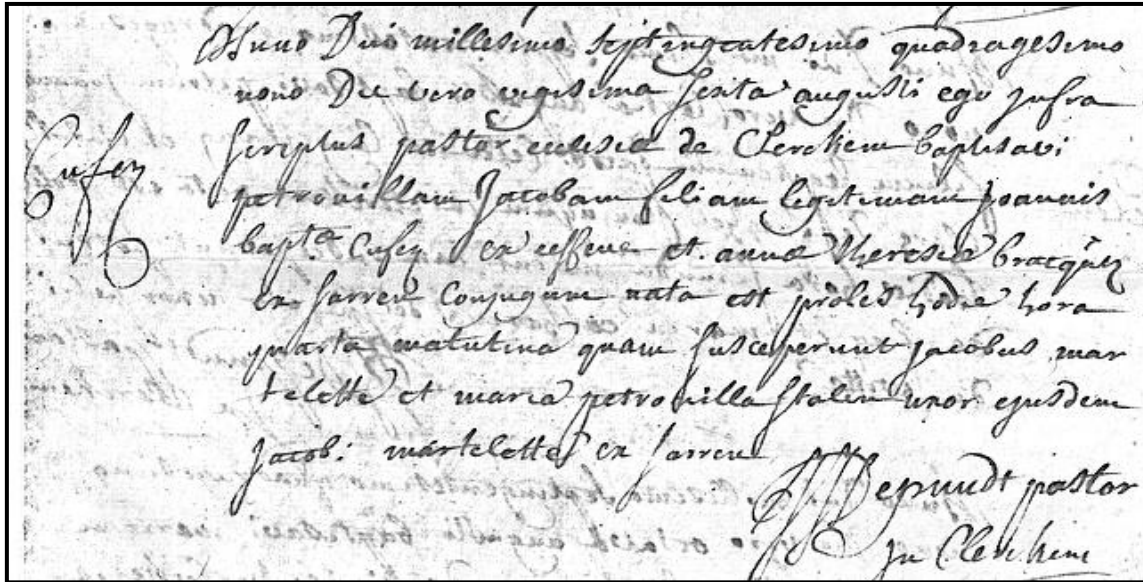 Anno Dni millesimo septingentesimo quadragesimo
nono Die vero vigesima sexta augusti ego jnfra
Cufez
scriptus pastor ecclesiæ de Clerckem baptisavi
petronillam Jacobam filiam legitimam joannis
bapta Cufez ex et annæ theresiæ bracquez
ex sarren Conjugum nata est proles hodie hora
quarta matutina quam susceperunt jacobus mar
telotte et maria petronilla stalen uxor ejusdem
jacobi martelotte ex sarren
pastor
jn Clerckem